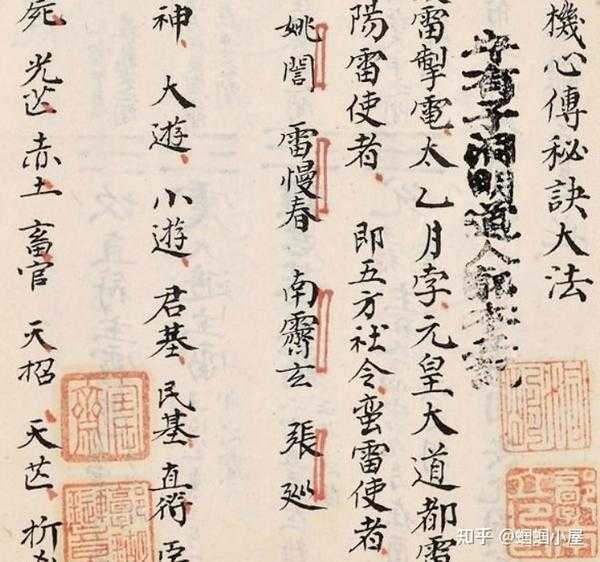 機心傳秘訣大法
子洞明道人
雷掣電太乙月孛元皇大道都雷
陽雷使者 即五方社令蠻雷使者
姚誾 雷慢春 南霽云 張廵
神 大遊 小遊 君基 民基 直符
死 光芒 赤土 畜官 天招 天芒 折
知乎 @蝈蝈小屋